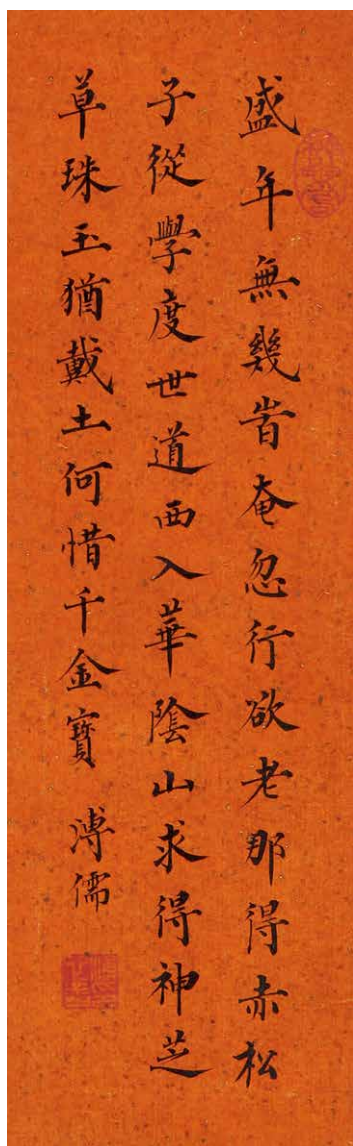 盛年無幾旹奄忽行欲老那得赤松
子從學度世道西入華陰山求得神芝
草珠玉猶戴土何惜千金寶 溥儒